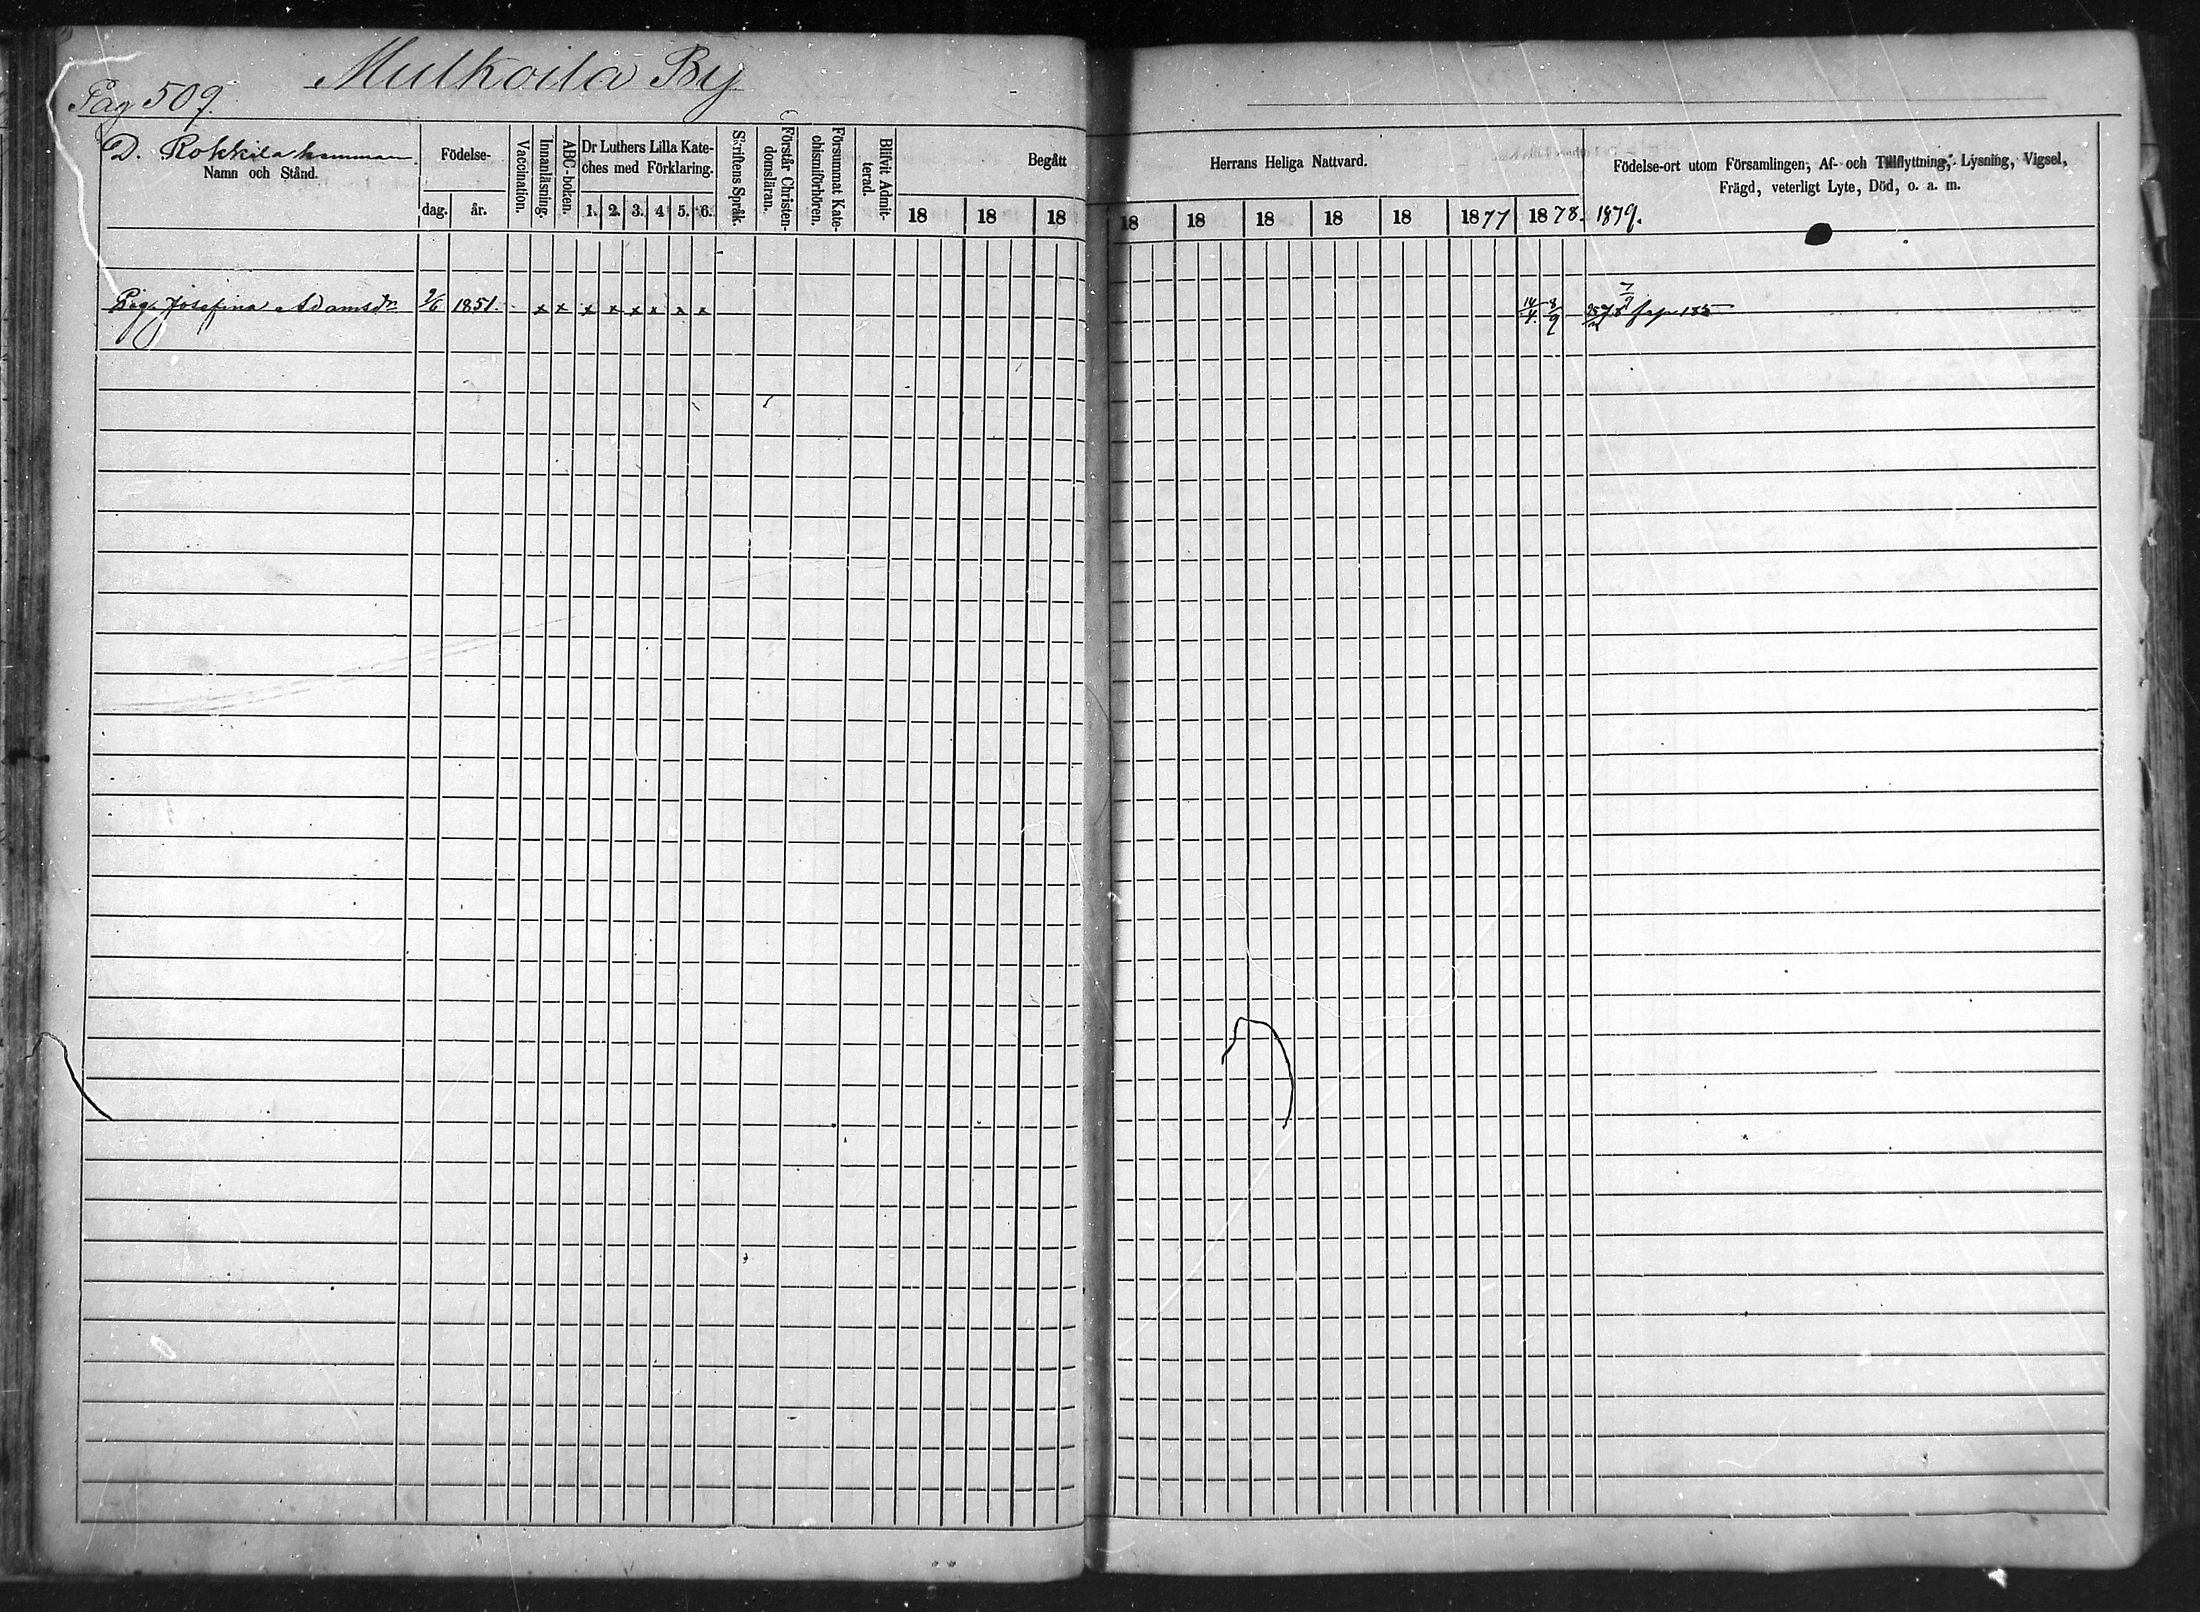 Mulkoila By
Pag 509.
D. Rokkila hemman.
Namn och Stånd.
Födelse-
dag. år.
Vaccination.
Innanläsning.
ABC-boken.
Dr Luthers Lilla Kate-
ches med Förklaring.
1. 2. 3. 4 5. 6.
Skriftens Språk.
Förstår Christen-
domsläran.
Försummat Kate-
chismiförhören.
Blifvit Admit-
terad.
Begått Herrans Heliga Nattvard.
18 18 18 18 18 18 18 18 1877 1878. 1879.
Födelse-ort utom Församlingen, Af- och Tillflyttning, Lysning, Vigsel,
Frägd, veterligt Lyte, Död, o. a. m.
Pig. Josefina Adamsdr 2/6 1851. x x x x x x x x 14/4. 8/9 7/9